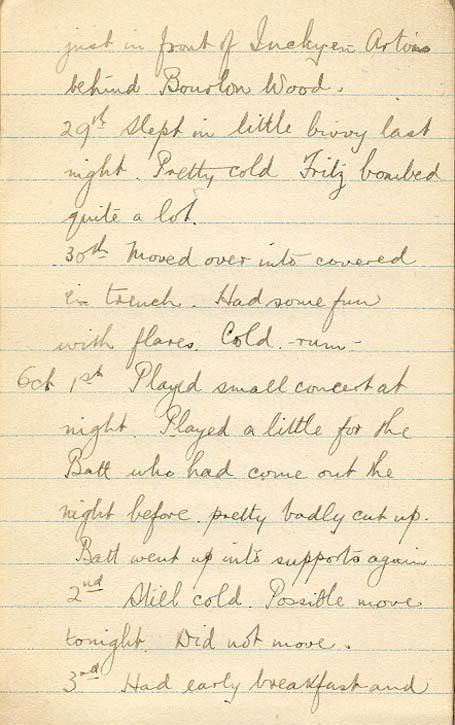 just in front of Inchy en Artois
behind Bourlon Wood.
29th Slept in little bivvy last
night. Pretty cold Fritz bombed
quite a lot.
30th Moved over into covered
in trench. Had some fun
with flares. Cold. -rum-
Oct 1st Played small concert at
night. Played a little for the
Batt who had come out the
night before. pretty badly cut up.
Batt went up into supports again
2nd Still cold. Possible move
tonight. Did not move.
3rd Had early breakfast and